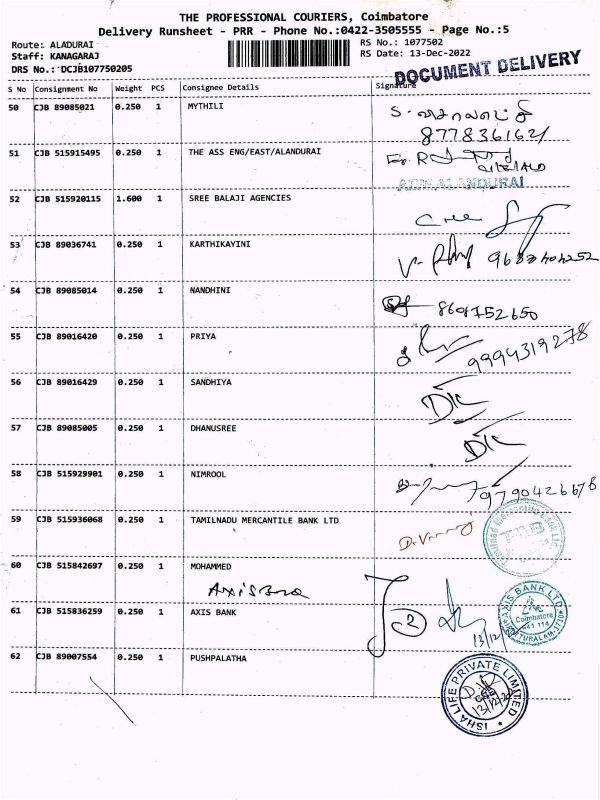 THE PROFESSIONAL COURIERS, Coimbatore
Delivery Runsheet - PRR - Phone No.:0422-3505555 - Page No.:5
Route: ALADURAI RS No.: 1077502
Staff: KANAGARAJ RS Date: 13-Dec-2022
DRS No.: DCJB107750205
DOCUMENT DELIVERY
S No Consignment No Weight PCS Consignee Details Signature
50 CJB 89085021 0.250 1 MYTHILI
8778361621
51 CJB 515915495 0.250 1 THE ASS ENG/EAST/ALANDURAI
52 CJB 515920115 1.600 1 SREE BALAJI AGENCIES
53 CJB 89036741 0.250 1 KARTHIKAYINI
54 CJB 89085014 0.250 1 NANDHINI
8608752650
55 CJB 89016420 0.250 1 PRIYA
9994319278
56 CJB 89016429 0.250 1 SANDHIYA
57 CJB 89085005 0.250 1 DHANUSREE
58 CJB 515929901 0.250 1 NIMROOL
9790426678
59 CJB 515936068 0.250 1 TAMILNADU MERCANTILE BANK LTD
TMB
60 CJB 515842697 0.250 1 MOHAMMED
Axis Bank
61 CJB 515836259 0.250 1 AXIS BANK
2
13/12/22
AXIS BANK LTD
Coimbatore
62 CJB 89007554 0.250 1 PUSHPALATHA
ISHA LIFE PRIVATE LIMITED
13/12/22